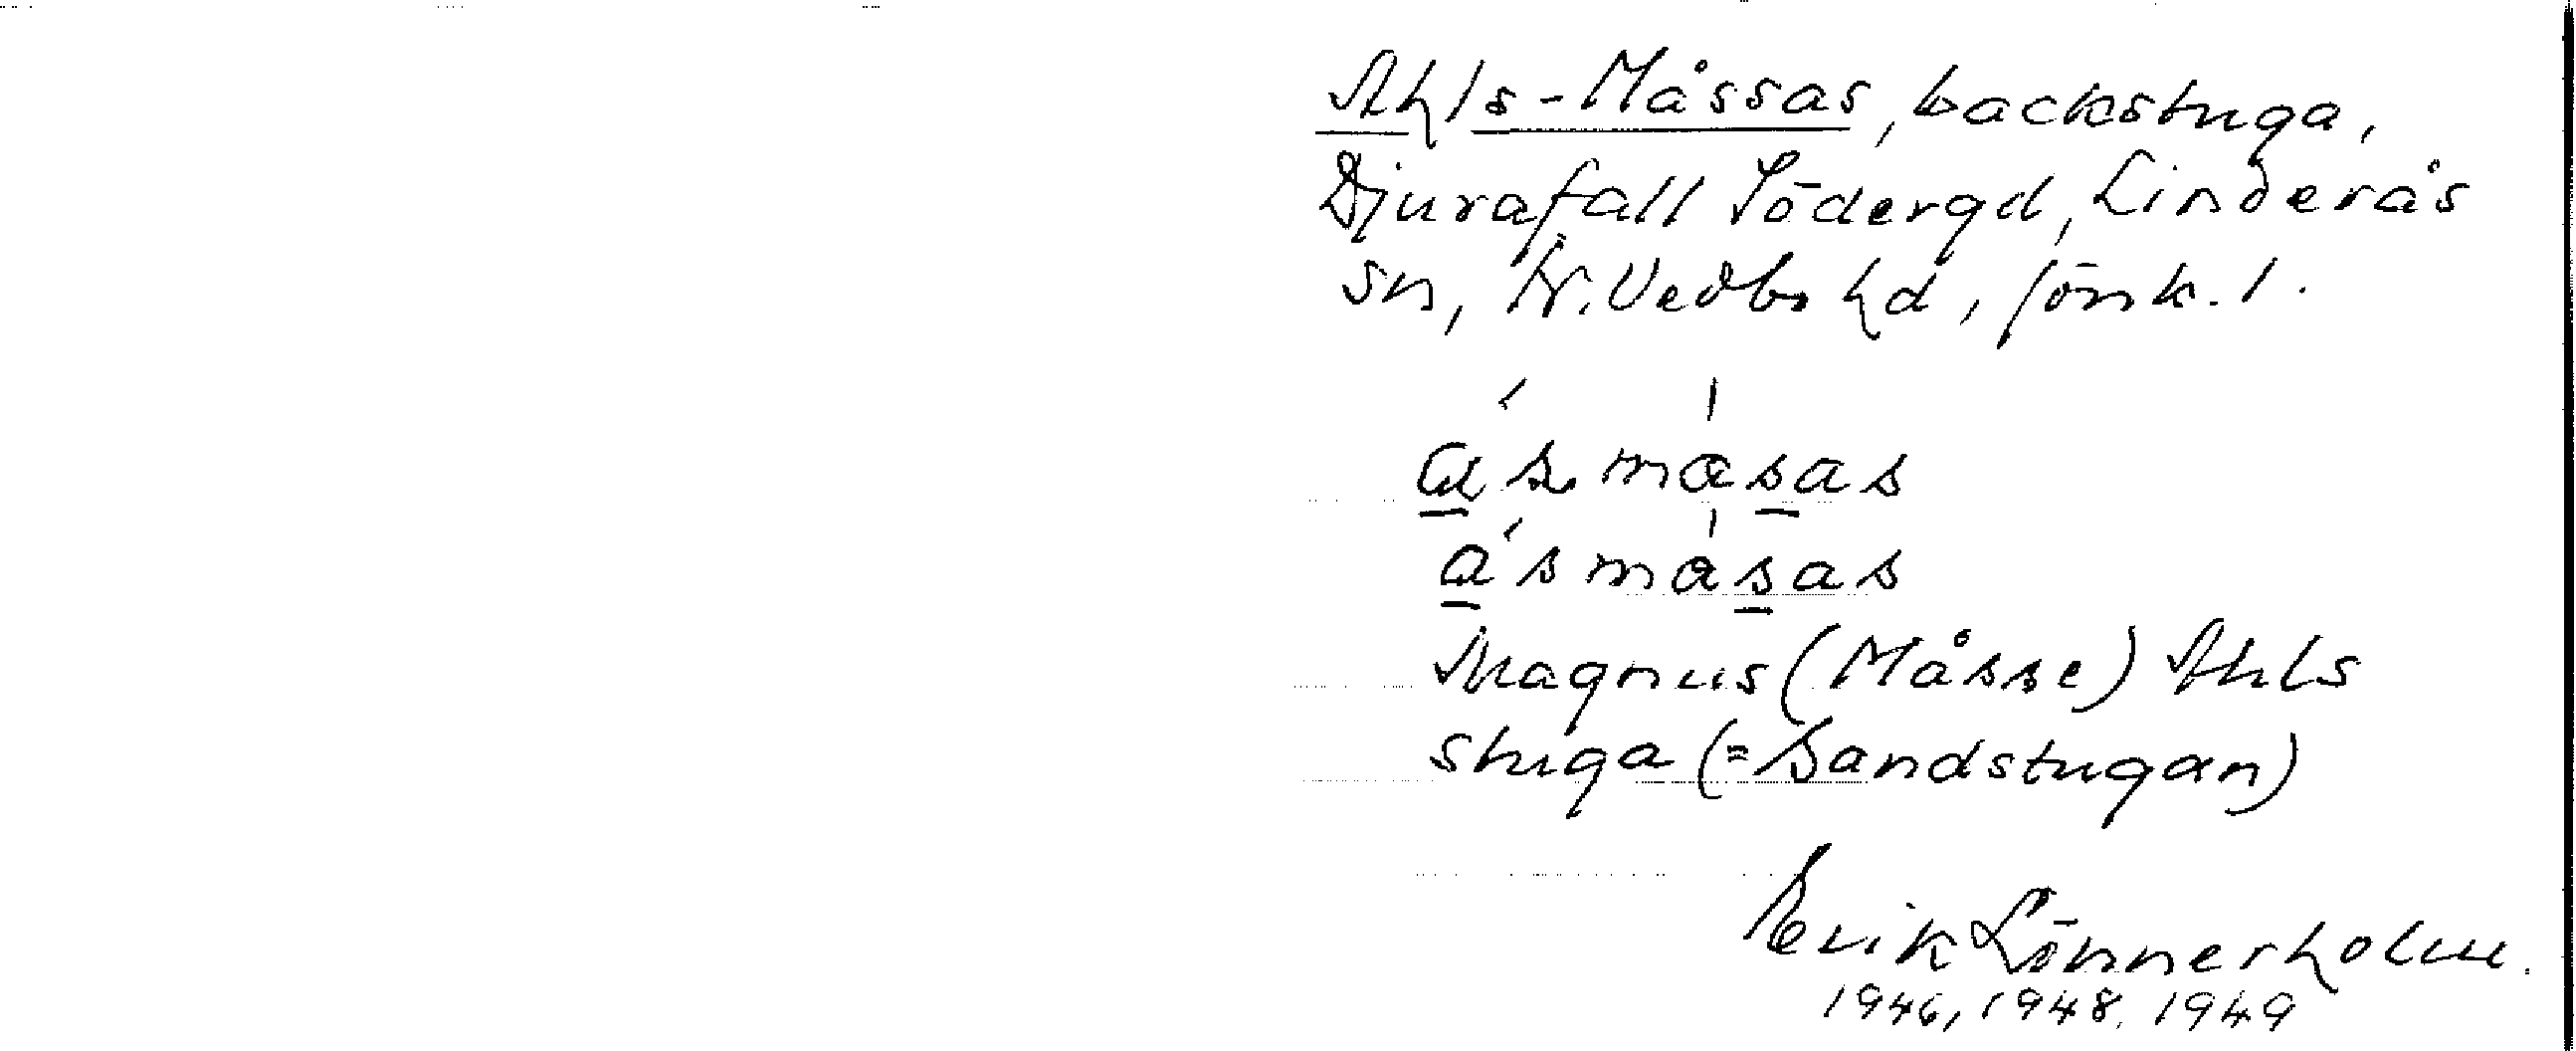 Ahls-Måssas, backstuga,
Djurafall Södergd, Linderås
sn, N. Vedbo hd, Jönk. l.
ásmasas
ásmasas
Magnus (Måsse) Ahls
stuga (= Sandstugan)
Erik Lönnerholm.
1946, 1948, 1949